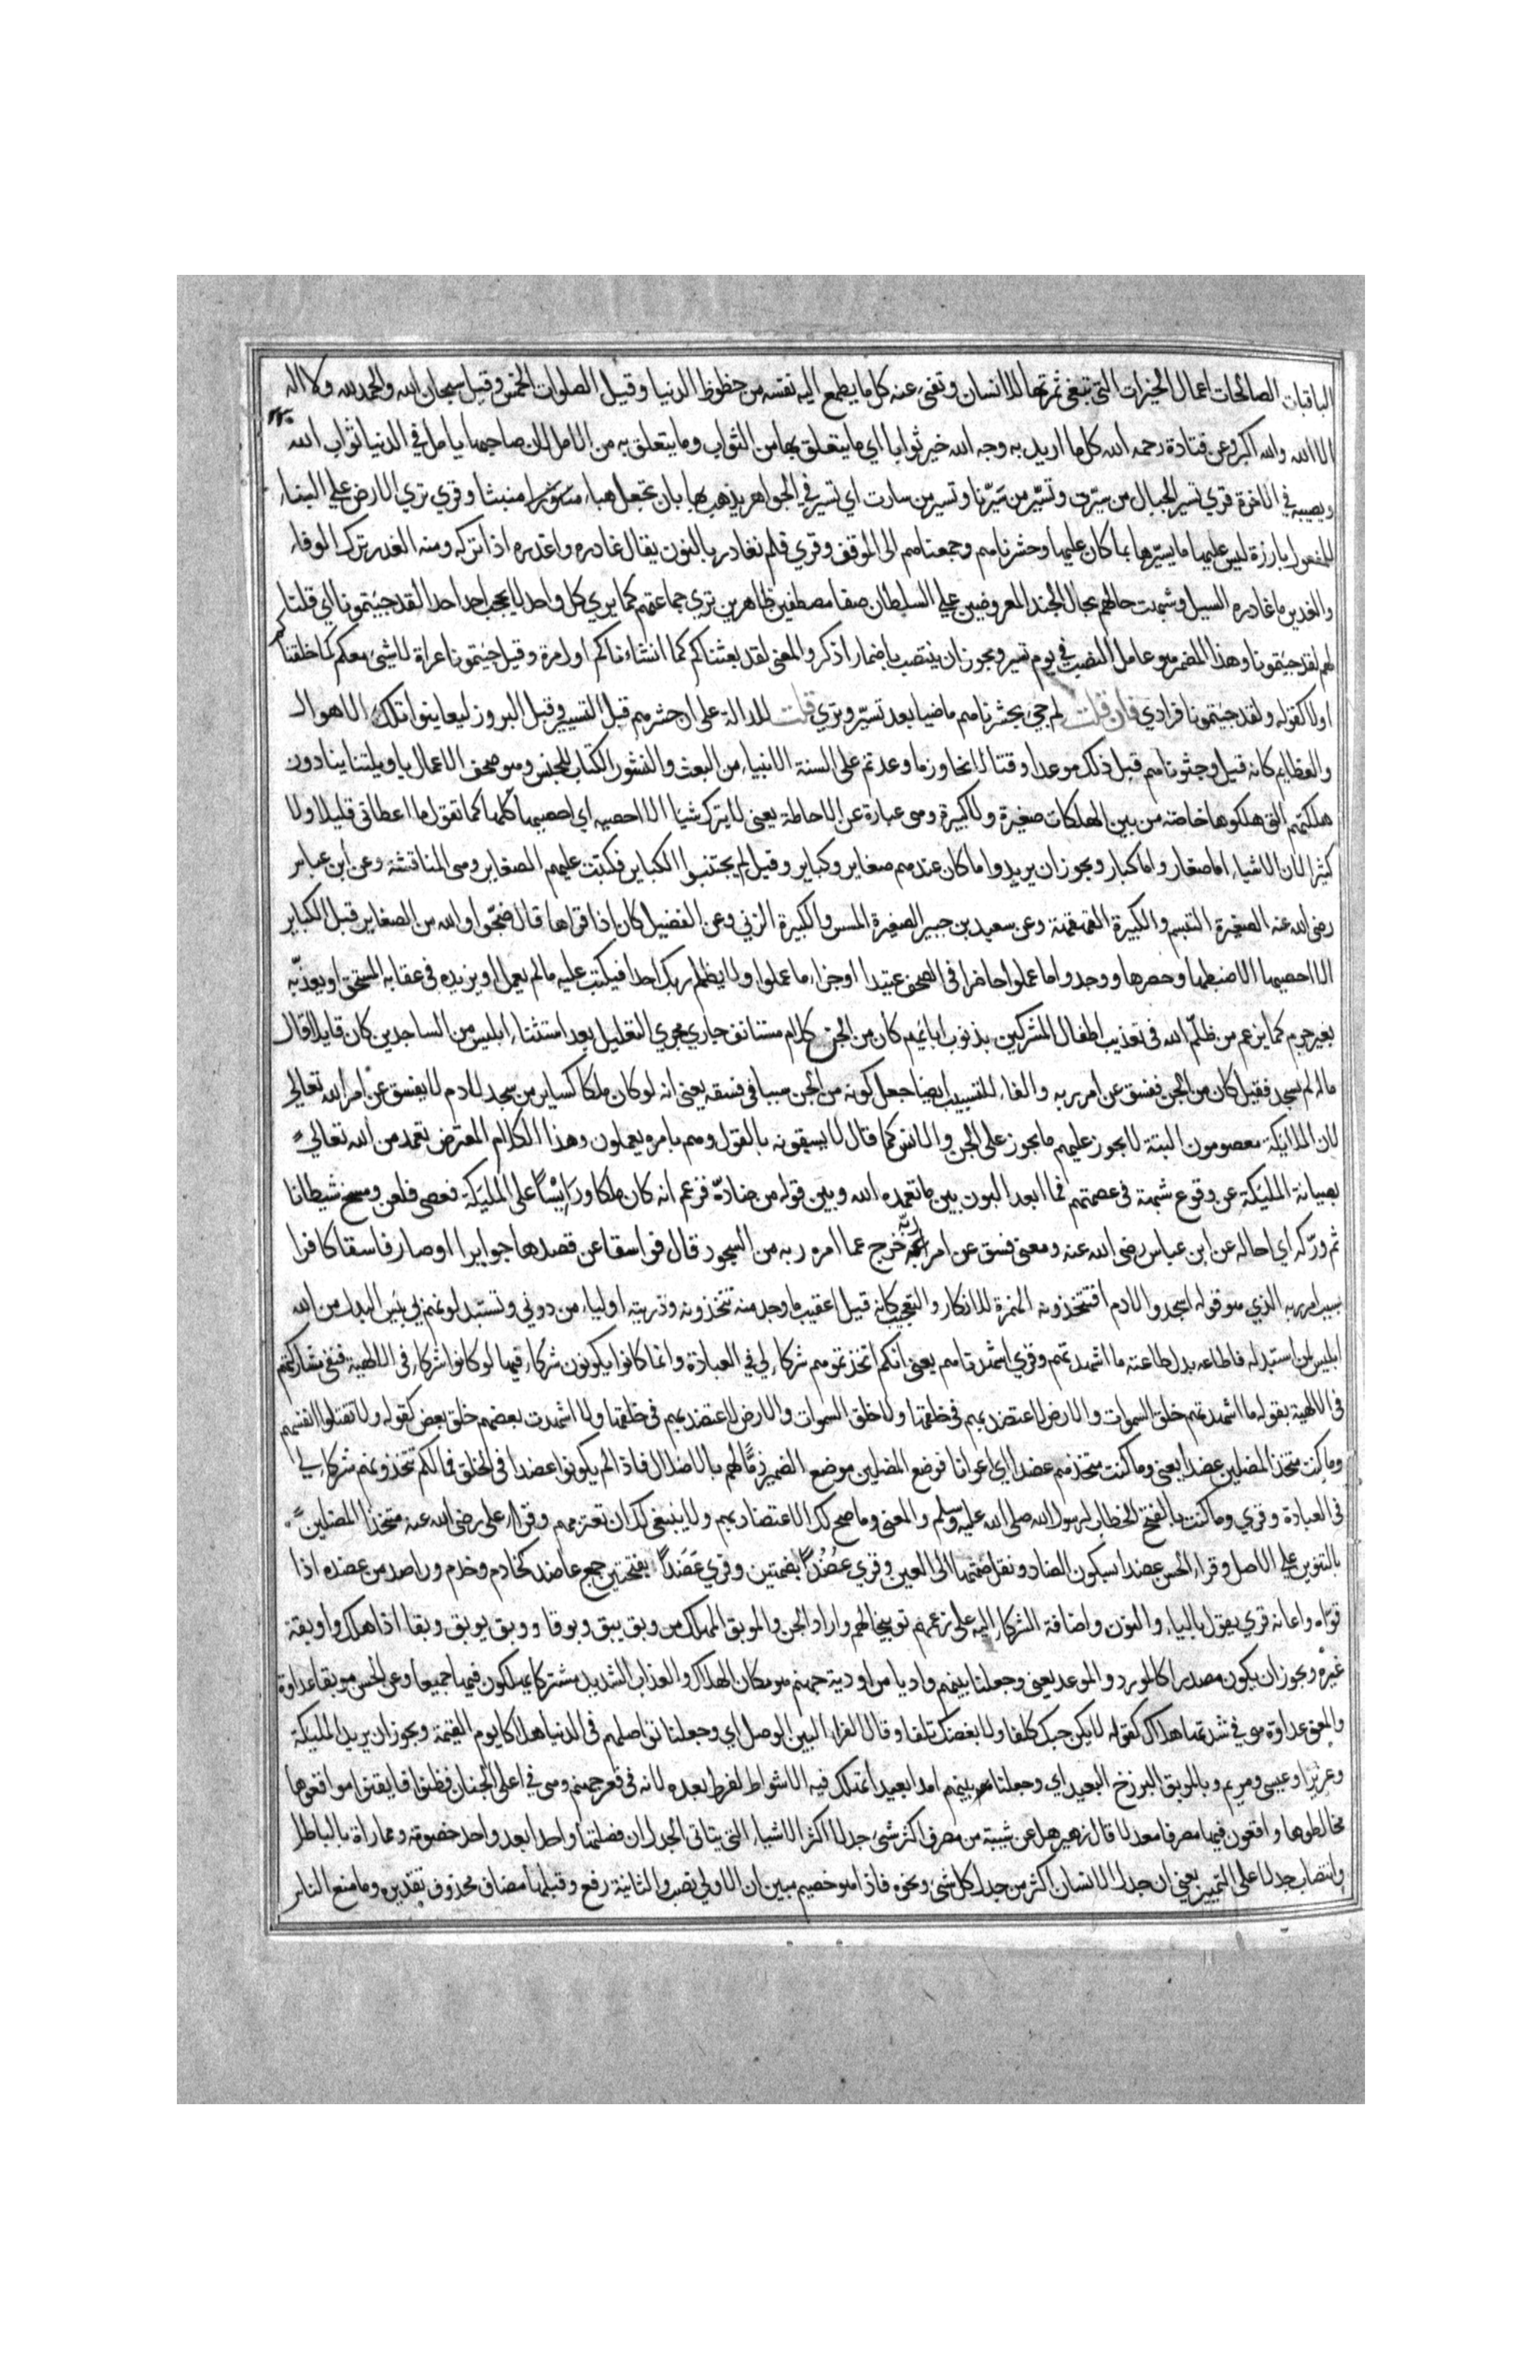 الباقيات الصالحات اعمال الخيرات التى تبقى ثمرتها للانسان وتفنى عنه كل ما يطمع اليه نفسه من حظوظ الدنيا وقيل الصلوات الخمس وقيل سبحان الله والحمد لله ولا اله
الا الله والله اكبر وعن قتادة رحمه الله كل ما اريد به وجه الله خير ثوابا اي ما يتعلق بها من الثواب وما يتعلق به من الامل لان صاحبها يامل في الدنيا ثواب الله
ويصيبه في الاخرة قري تسير الجبال من سيرت وتسير من سيرنا وتسير من سارت اي تسير في الجو اهر يذهب بها بان تجعل هباء منثورا منبثا وقري تري الارض علي البناء
للمفعول بارزة ليس عليها ما يسترها مما كان عليها وحشرناهم وجمعناهم الى الموقف وقري فلم نغادر بالنون يقال غادره واغدره اذا تركه ومنه الغدر ترك الوفاء
والغدير ما غادره السيل وشبهت حالهم بحال الجند المعروضين علي السلطان صفا مصطفين ظاهرين تري جماعتهم كما يري كل واحد لا يحجب احد احدا لقد جيتمونا اي قلنا
لهم لقد جيتمونا وهذا المضمر هو عامل النصب في يوم تسير ويجوز ان ينتصب باضمار اذكر والمعنى لقد بعثناكم كما انشاناكم اول مرة وقيل جيتمونا عراة لا شئ معكم كما خلقناكم
اولا كقوله ولقد جيتمونا فرادي فان قلت لم جئ بحشرناهم ماضيا بعد تسير وتري قلت للدلالة على ان حشرهم قبل التسيير وقبل البروز ليعاينوا تلك الاهوال
والعظايم كانه قيل وحشرناهم قبل ذلك موعدا وقتا لانجاز ما وعدتم على السنة الانبياء من البعث والنشور الكتاب للجنس وهو صحف الاعمال يا ويلتنا ينادون
هلكتهم التى هلكوها خاصة من بين الهلكات صغيرة ولا كبيرة وهى عبارة عن الاحاطة يعنى لا يترك شيئا الا احصيه اي احصيها كلها كما تقول ما اعطانى قليلا ولا
كثيرا لان الاشياء اما صغار واما كبار ويجوز ان يريد واما كان عندهم صغاير وكباير وقيل لم يجتنبوا الكباير فكتبت عليهم الصغاير وهى المناقشة وعن ابن عباس
رضى الله عنه الصغيرة التبسم والكبيرة القهقهة وعن سعيد بن جبير الصغيرة المسيس والكبيرة الزنى وعن الفضيل كان اذا قراها قال ضجوا والله من الصغاير قبل الكباير
الا احصيها الا ضبطها وحصرها ووجدوا ما عملوا حاضرا فى الصحف عتيدا او جزاء ما عملوا ولا يظلم ربك احدا فيكتب عليه ما لم يعمل او يزيده فى عقابه المستحق او يعذبه
بغير جرم كما يزعم من ظلم الله فى تعذيب اطفال المشركين بذنوب ابائهم كان من الجن كلام مستانف جاري مجري التعليل بعد استثناء ابليس من الساجدين كان قايلا قال
ماله لم يسجد فقيل كان من الجن ففسق عن امر ربه والفاء للتسبيب ايضا جعل كونه من الجن سببا فى فسقه يعنى انه لو كان ملكا كساير من سجد لادم لا يفسق عن امر الله تعالى
لان الملايكة معصومون البتة لا يجوز عليهم ما يجوز على الجن والانس كما قال لا يسبقونه بالقول وهم بامره يعملون وهذا الكلام المعترض تعمد من الله تعالى
بصيانة المليكة عن وقوع شبهة فى عصمتهم فما ابعد البون بين ما تعمده الله وبين قوله من ضاده فزعم انه كان ملكا ورايسا على المليكة فعصى فلعن ومسخ شيطانا
ثم ورّكه اي احاله عن ابن عباس رضى الله عنه ومعنى فسق عن امر ربه خرج عما امره ربه من السجود قال فواسقا عن قصدها جوايرا او صار فاسقا كافرا
بسبب امر ربه الذي هو قوله اسجدوا لادم افتتخذونه الهمزة للانكار والتعجيب كانه قيل اعقيب ما وجد منه تتخذونه وذريته اولياء من دوني وتستبدلونهم بي بئس البدل من الله
ابليس لمن استبدله فاطاعه بدل طاعته ما اشهدتهم وقري اشهدناهم يعنى انكم اتخذتموهم شركاء لي في العبادة وانما كانوا يكونون شركاء فيها لو كانوا شركاء فى الالهية فنفى مشاركتهم
فى الالهية بقوله ما اشهدتهم خلق السموات والارض لاعتضد بهم فى خلقها ولا خلق السموات والارض لاعتضد بهم فى خلقها ولا اشهدت بعضهم خلق بعض كقوله ولا تقتلوا انفسهم
وما كنت متخذ المضلين عضدا يعنى وما كنت متخذهم عضدا اي اعوانا فوضع المضلين موضع الضمير ذما لهم بالاضلال فاذا لم يكونوا عضدا فى الخلق فما لكم تتخذونهم شركاء لي
فى العبادة وقري وما كنت بالفتح الخطاب لرسول الله صلى الله عليه وسلم والمعنى وما صح لك الاعتضاد بهم ولا ينبغى لك ان تعتز بهم وقرا على رضى الله عنه متخذا المضلين
بالتنوين على الاصل وقرا الحسن عضدا بسكون الضاد ونقل ضمتها الى العين وقري عُضُدا بضمتين وقري عَضَدا بفتحتين جمع عاضد كخادم وخدم وراصد من عضده اذا
قواه واعانه قري يقول بالياء والنون واضافة الشركاء اليه على زعمهم توبيخا لهم واراد الجن والموبق المهلك من وبق يبق وبوقا ووبق يوبق وبقا اذا هلك واوبقه
غيره ويجوز ان يكون مصدرا كالمورد والموعد يعنى وجعلنا بينهم واديا من اودية جهنم هو مكان الهلاك والعذاب الشديد مشتركا يهلكون فيها جميعا وعن الحسن موبقا عداوة
والمعنى عداوة هى في شدتها هلاك كقوله لا يكن حبك كلفا ولا بغضك تلفا وقال الفراء البين الوصل اي وجعلنا تواصلهم فى الدنيا هلاكا يوم القيمة ويجوز ان يريد المليكة
وعزيرا وعيسى ومريم وبالموبق البرزخ البعيد اي وجعلنا بينهم امدا بعيدا تهلك فيه الاشواط لفرط بعده لانه فى قعر جهنم وهى في اعلى الجنان فظنوا فايقنوا مواقعوها
مخالطوها واقعون فيها مصرفا معدلا قال زهير هل عن شيبة من مصرف اكثر شئ جدلا اكثر الاشياء التى يتاتى الجدل ان فصلتها واحدا بعد واحد خصومة ومماراة بالباطل
وانتصاب جدلا على التمييز يعني ان جدل الانسان اكثر من جدل كل شئ ونحوه فاذا هو خصيم مبين ان الاولى نصب والثانية رفع وقبلها مضاف محذوف تقديره وما منع الناس